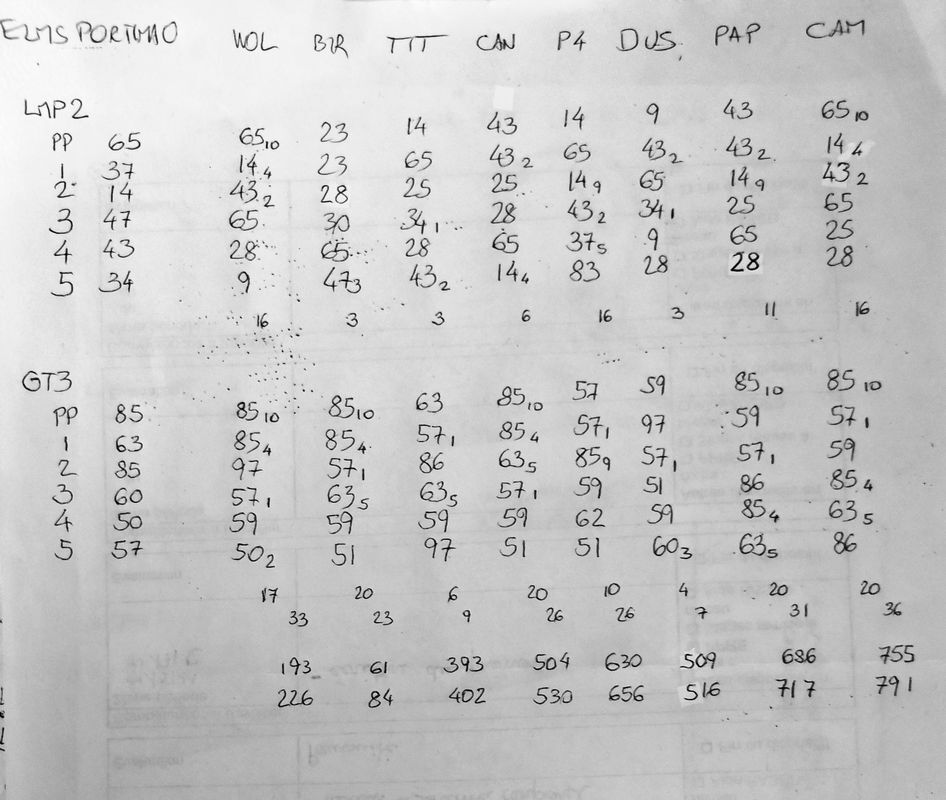 ELMS PORTIMAO WOL BIR TIT CAN P4 DUS. PAP CAM
LMP2
PP 65 65 10 23 14 43 14 9 43 65 10
1 37 14 4 23 65 43 2 65 43 2 43 2 14 4
2 14 43 2 28 25 25 14 9 65 14 9 43 2
3 47 65 30 34 1 28 43 2 34 1 25 65
4 43 28 65 28 65 37 5 9 65 25
5 34 9 47 3 43 2 14 4 83 28 28 28
16 3 3 6 16 3 11 16
GT3
PP 85 85 10 85 10 63 85 10 57 59 85 10 85 10
1 63 85 4 85 4 57 1 85 4 57 1 97 59 57 1
2 85 97 57 1 86 63 5 85 9 57 1 57 1 59
3 60 57 1 63 5 63 5 57 1 59 51 86 85 4
4 50 59 59 59 59 62 59 85 4 63 5
5 57 50 2 51 97 51 51 60 3 63 5 86
17 20 6 20 10 4 20 20
33 23 9 26 26 7 31 36
193 61 393 504 630 509 686 755
226 84 402 530 656 516 717 791